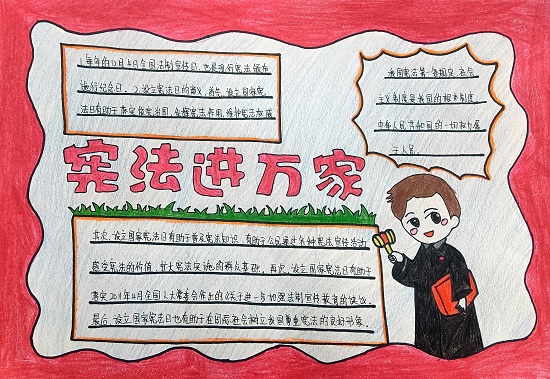 1每年的12月4日全国法制宣传日,也是现行宪法颁布
施行纪念日。2设立宪法日的意义,首先,设立国家宪
法日有助于落实依宪治国,发挥宪法作用,维护宪法权威
我国宪法第一条规定,社会
主义制度是我国的根本制度,
中华人民共和国的一切权力属
于人民。
宪法进万家
其次,设立国家宪法日有助于普及宪法知识,有助于公民通过各种宪法宣传活动
感受宪法的价值,扩大宪法实施的群众基础。再次,设立国家宪法日有助于
落实2011年4月全国人大常委会作出的《关于进一步加强法制宣传教育的决议。
最后,设立国家宪法日也有助于在国际社会树立我国尊重宪法的良好形象。